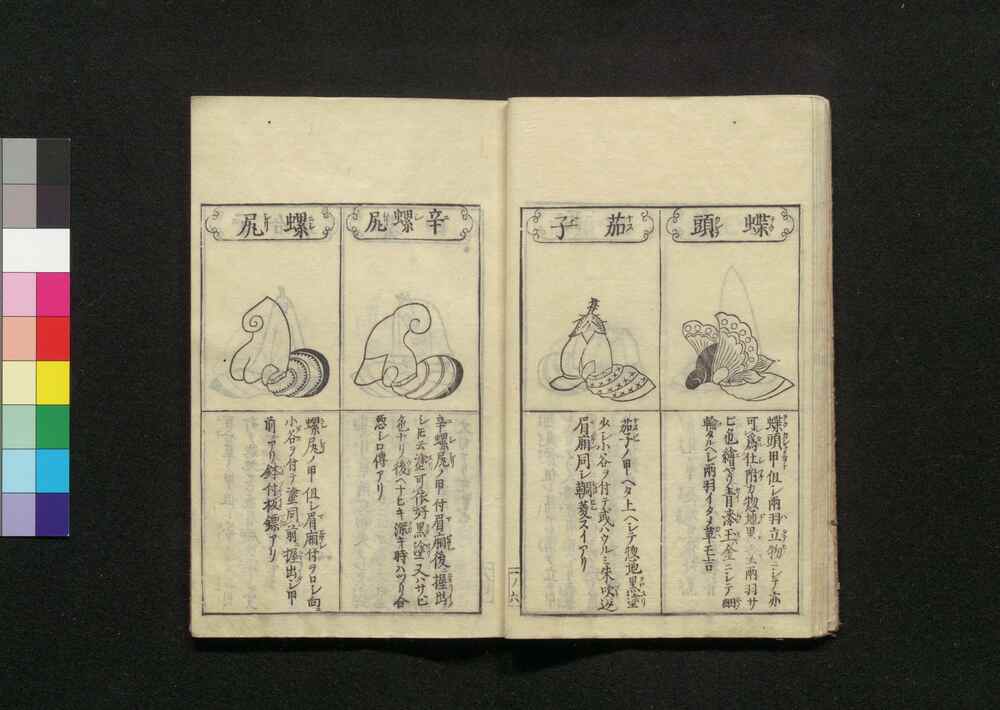 蝶頭
茄子
辛螺尻
螺尻
蝶頭甲但シ兩羽立物ニシテ亦
可爲仕附方惣地黒
ヒ色繪ヘリ青漆玉金ニシテ
輪タルヘシ兩羽イタメ革モ吉
茄子ノ甲ヘタ上ヘシテ惣地黒塗
少シ小谷ヲ付テ或ハウルミ朱吹返
眉廂同シ鞠菱スイアリ
辛螺尻ノ甲付眉廂後ヘ握出
シ塗可依好黒塗又ハサビ
色ナリ後ヘナヒキ深キ時ハツリ合
悪シ口傳アリ
螺尻ノ甲但シ眉廂付ヲロシ向
小谷ヲ付テ塗同前握出シ甲
前アリ鉢付板鏢アリ
一ノ六